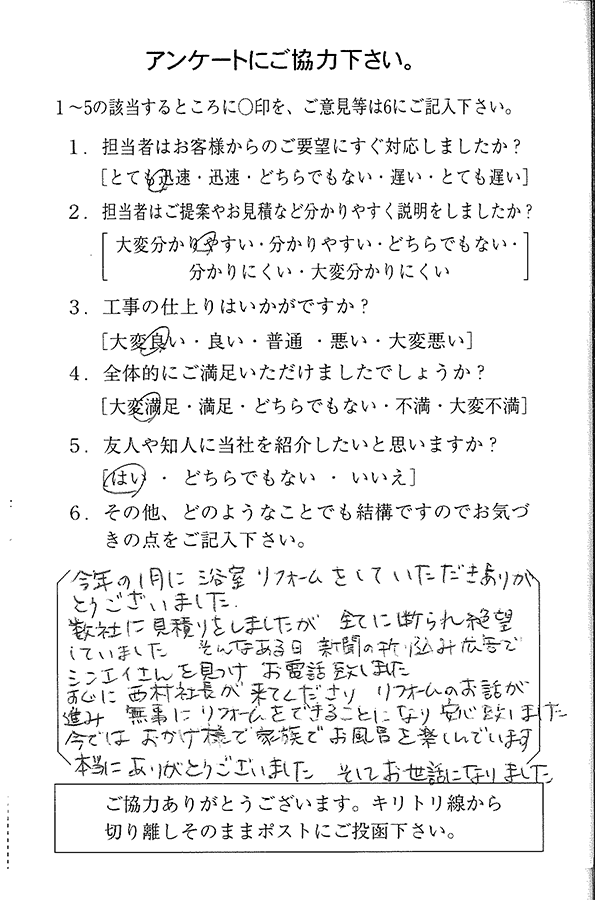 アンケートにご協力下さい。
1～5の該当するところに○印を、ご意見等は6にご記入下さい。
1．担当者はお客様からのご要望にすぐ対応しましたか？
[とても迅速・迅速・どちらでもない・遅い・とても遅い]
2．担当者はご提案やお見積など分かりやすく説明をしましたか？
[大変分かりやすい・分かりやすい・どちらでもない・
分かりにくい・大変分かりにくい]
3．工事の仕上りはいかがですか？
[大変良い・良い・普通・悪い・大変悪い]
4．全体的にご満足いただけましたでしょうか？
[大変満足・満足・どちらでもない・不満・大変不満]
5．友人や知人に当社を紹介したいと思いますか？
[はい・どちらでもない・いいえ]
6．その他、どのようなことでも結構ですのでお気づ
きの点をご記入下さい。
今年の1月に 浴室リフォームをしていただきありが
とうございました。
数社に見積りをしましたが 全てに断られ絶望
していました そんなある日 新聞の折り込み広告で
シンエイさんを見つけ お電話致しました
西村社長が来てくださり リフォームのお話が
進み 無事にリフォームをできることになり安心致しました
今では おかげ様で家族でお風呂を楽しんでいます
本当にありがとうございました そしてお世話になりました
ご協力ありがとうございます。キリトリ線から
切り離しそのままポストにご投函下さい。